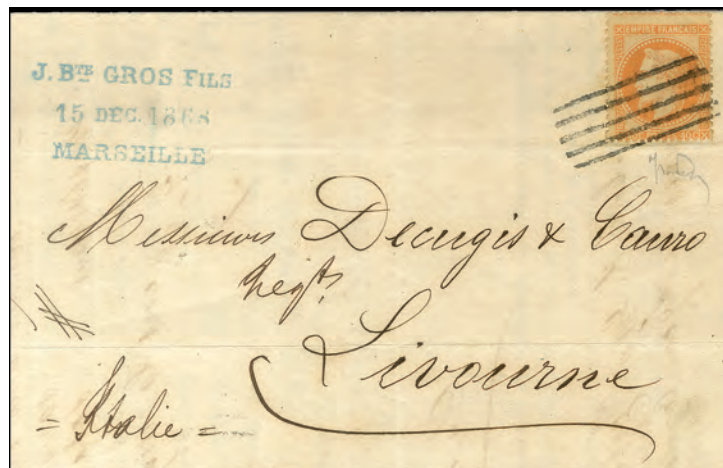 J. BTE GROS FILS
15 DEC. 1868
MARSEILLE
EMPIRE FRANÇAIS
Messieurs Decugis & Cauro
Negts
Livourne
= Italie =